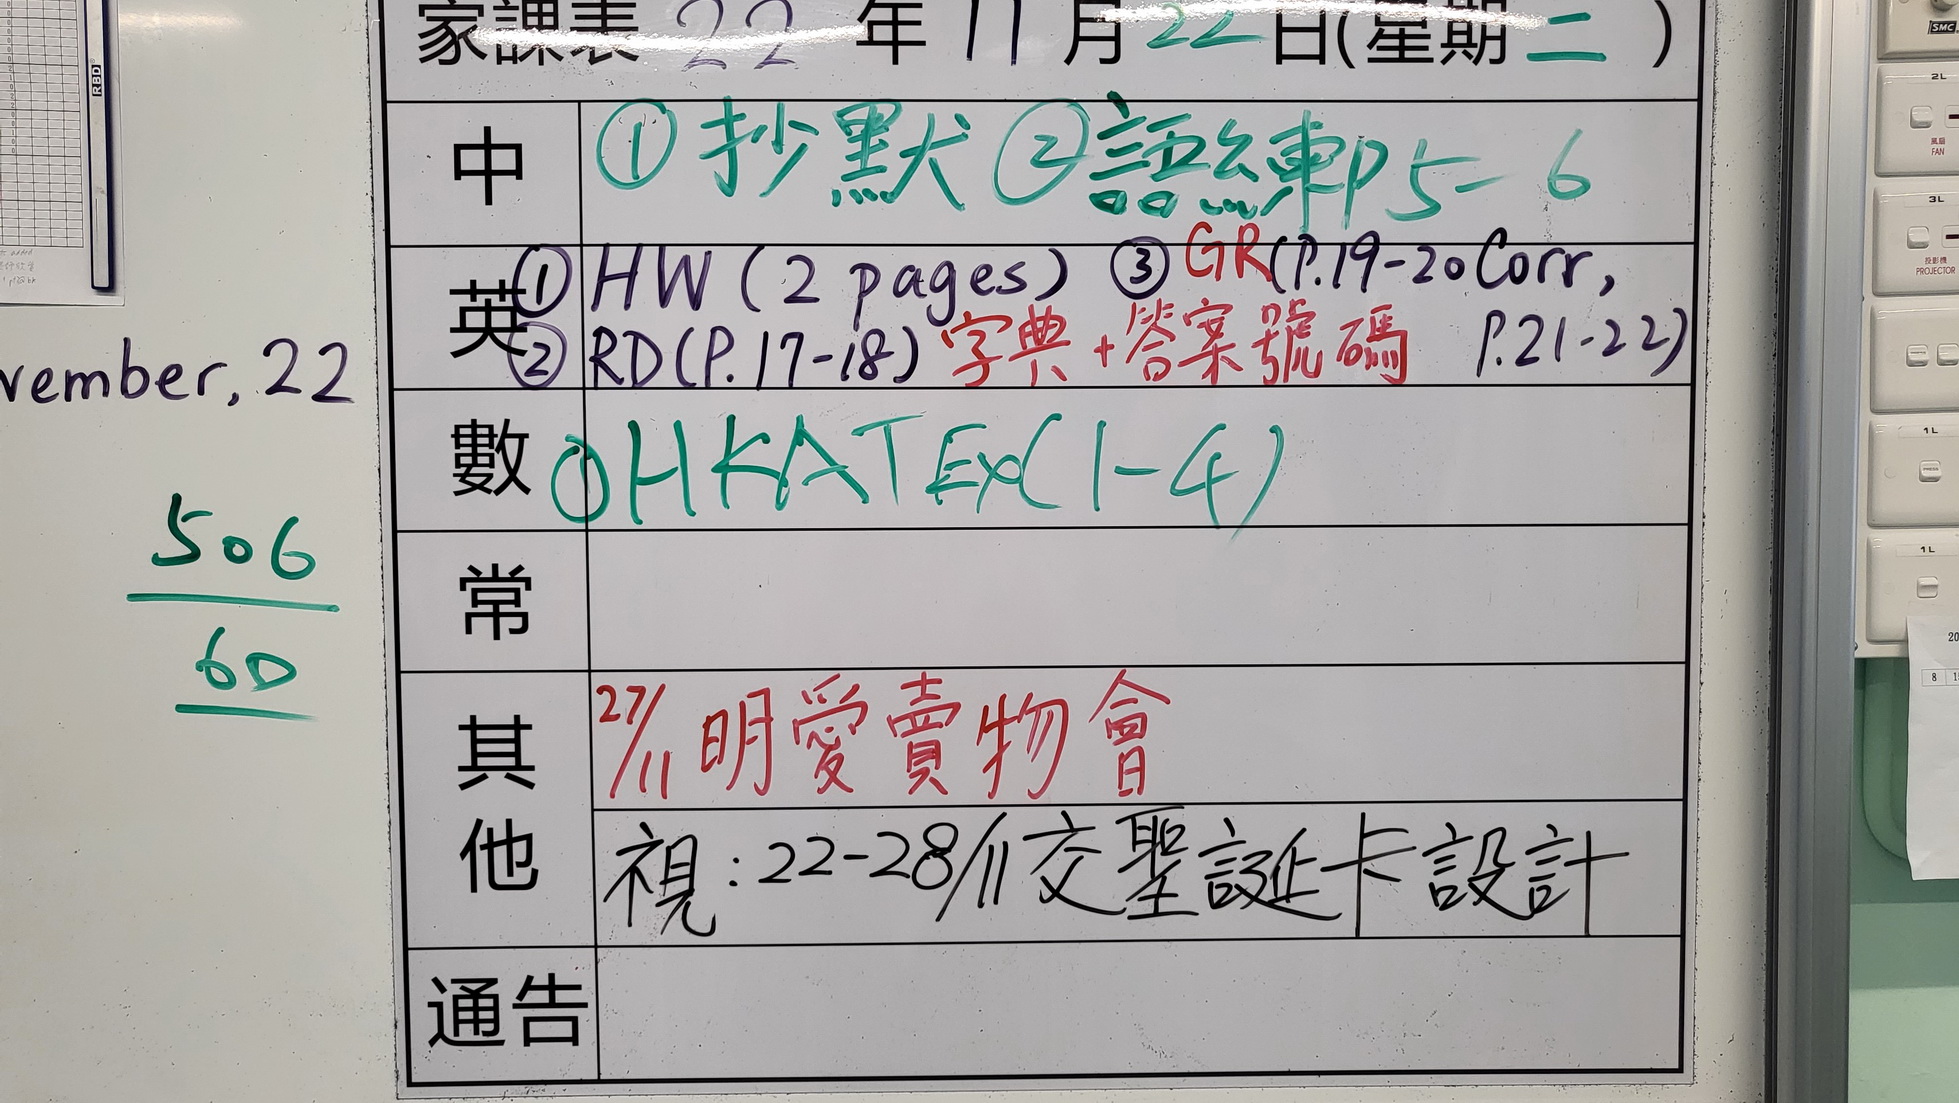 家課表 22 年 11 月 22 日(星期 二 )
中 ① 抄默 ② 語練P5-6
英 ① HW (2 pages) ③ GR(P.19-20 Corr,
② RD(P.17-18) 字典+答案號碼 P.21-22)
數 ① HKAT Ex(1-4)
常
其他
27/11 明愛賣物會
視:22-28/11交聖誕卡設計
通告
vember, 22
506
60
RBD
SMC
2L
風扇
FAN
3L
投影機
PROJECTOR
1L
1L
20
8